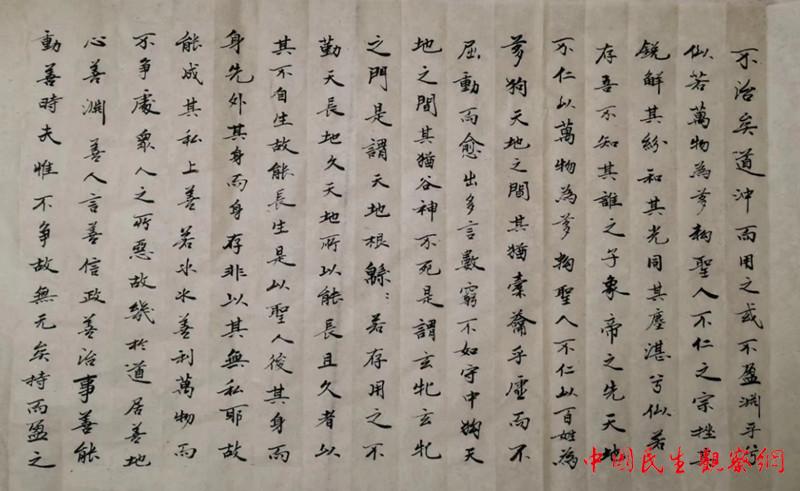 不治矣道沖而用之或不盈淵乎兮
似若萬物為芻狗聖人不仁之宗挫其
銳解其紛和其光同其塵湛兮似若
存吾不知其誰之子象帝之先天地
不仁以萬物為芻狗聖人不仁以百姓為
芻狗天地之間其猶橐籥乎虛而不
屈動而愈出多言數窮不如守中狗天
地之間其猶谷神不死是謂玄牝玄牝
之門是謂天地根緜：若存用之不
勤天長地久天地所以能長且久者以
其不自生故能長生是以聖人後其身而
身先外其身而身存非以其無私耶故
能成其私上善若水水善利萬物而
不爭處眾人之所惡故幾於道居善地
心善淵善人言善信政善治事善能
動善時夫惟不爭故無尤矣持而盈之
中國民生觀察網